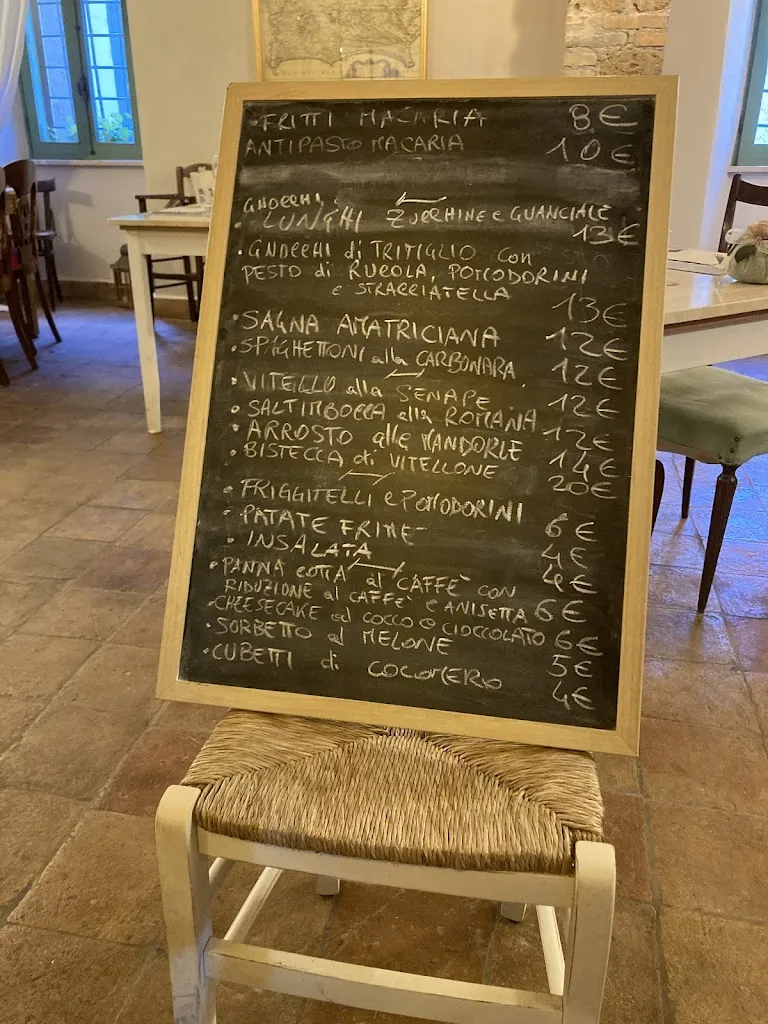 FRITTI MACARIA 8€
ANTIPASTO MACARIA 10€
GNOCCHI
LUNGHI ZUCCHINE e GUANCIALE 13€
• GNOCCHI di TRITIGLIO con
PESTO di RUCOLA, POMODORINI
e STRACCIATELLA 13€
• SAGNA AMATRICIANA 12€
• SPAGHETTONI alla CARBONARA 12€
• VITELLO alla SENAPE 12€
• SALTIMBOCCA alla ROMANA 12€
• ARROSTO alle MANDORLE 14€
• BISTECCA di VITELLONE 20€
• FRIGGITELLI e POMODORINI 6€
• PATATE FRITTE 4€
• INSALATA 4€
• PANNA COTTA al CAFFE' CON
RIDUZIONE al CAFFE' e ANISETTA 6€
• CHEESECAKE al COCCO e CIOCCOLATO 6€
• SORBETTO al MELONE 5€
• CUBETTI di COCOMERO 4€